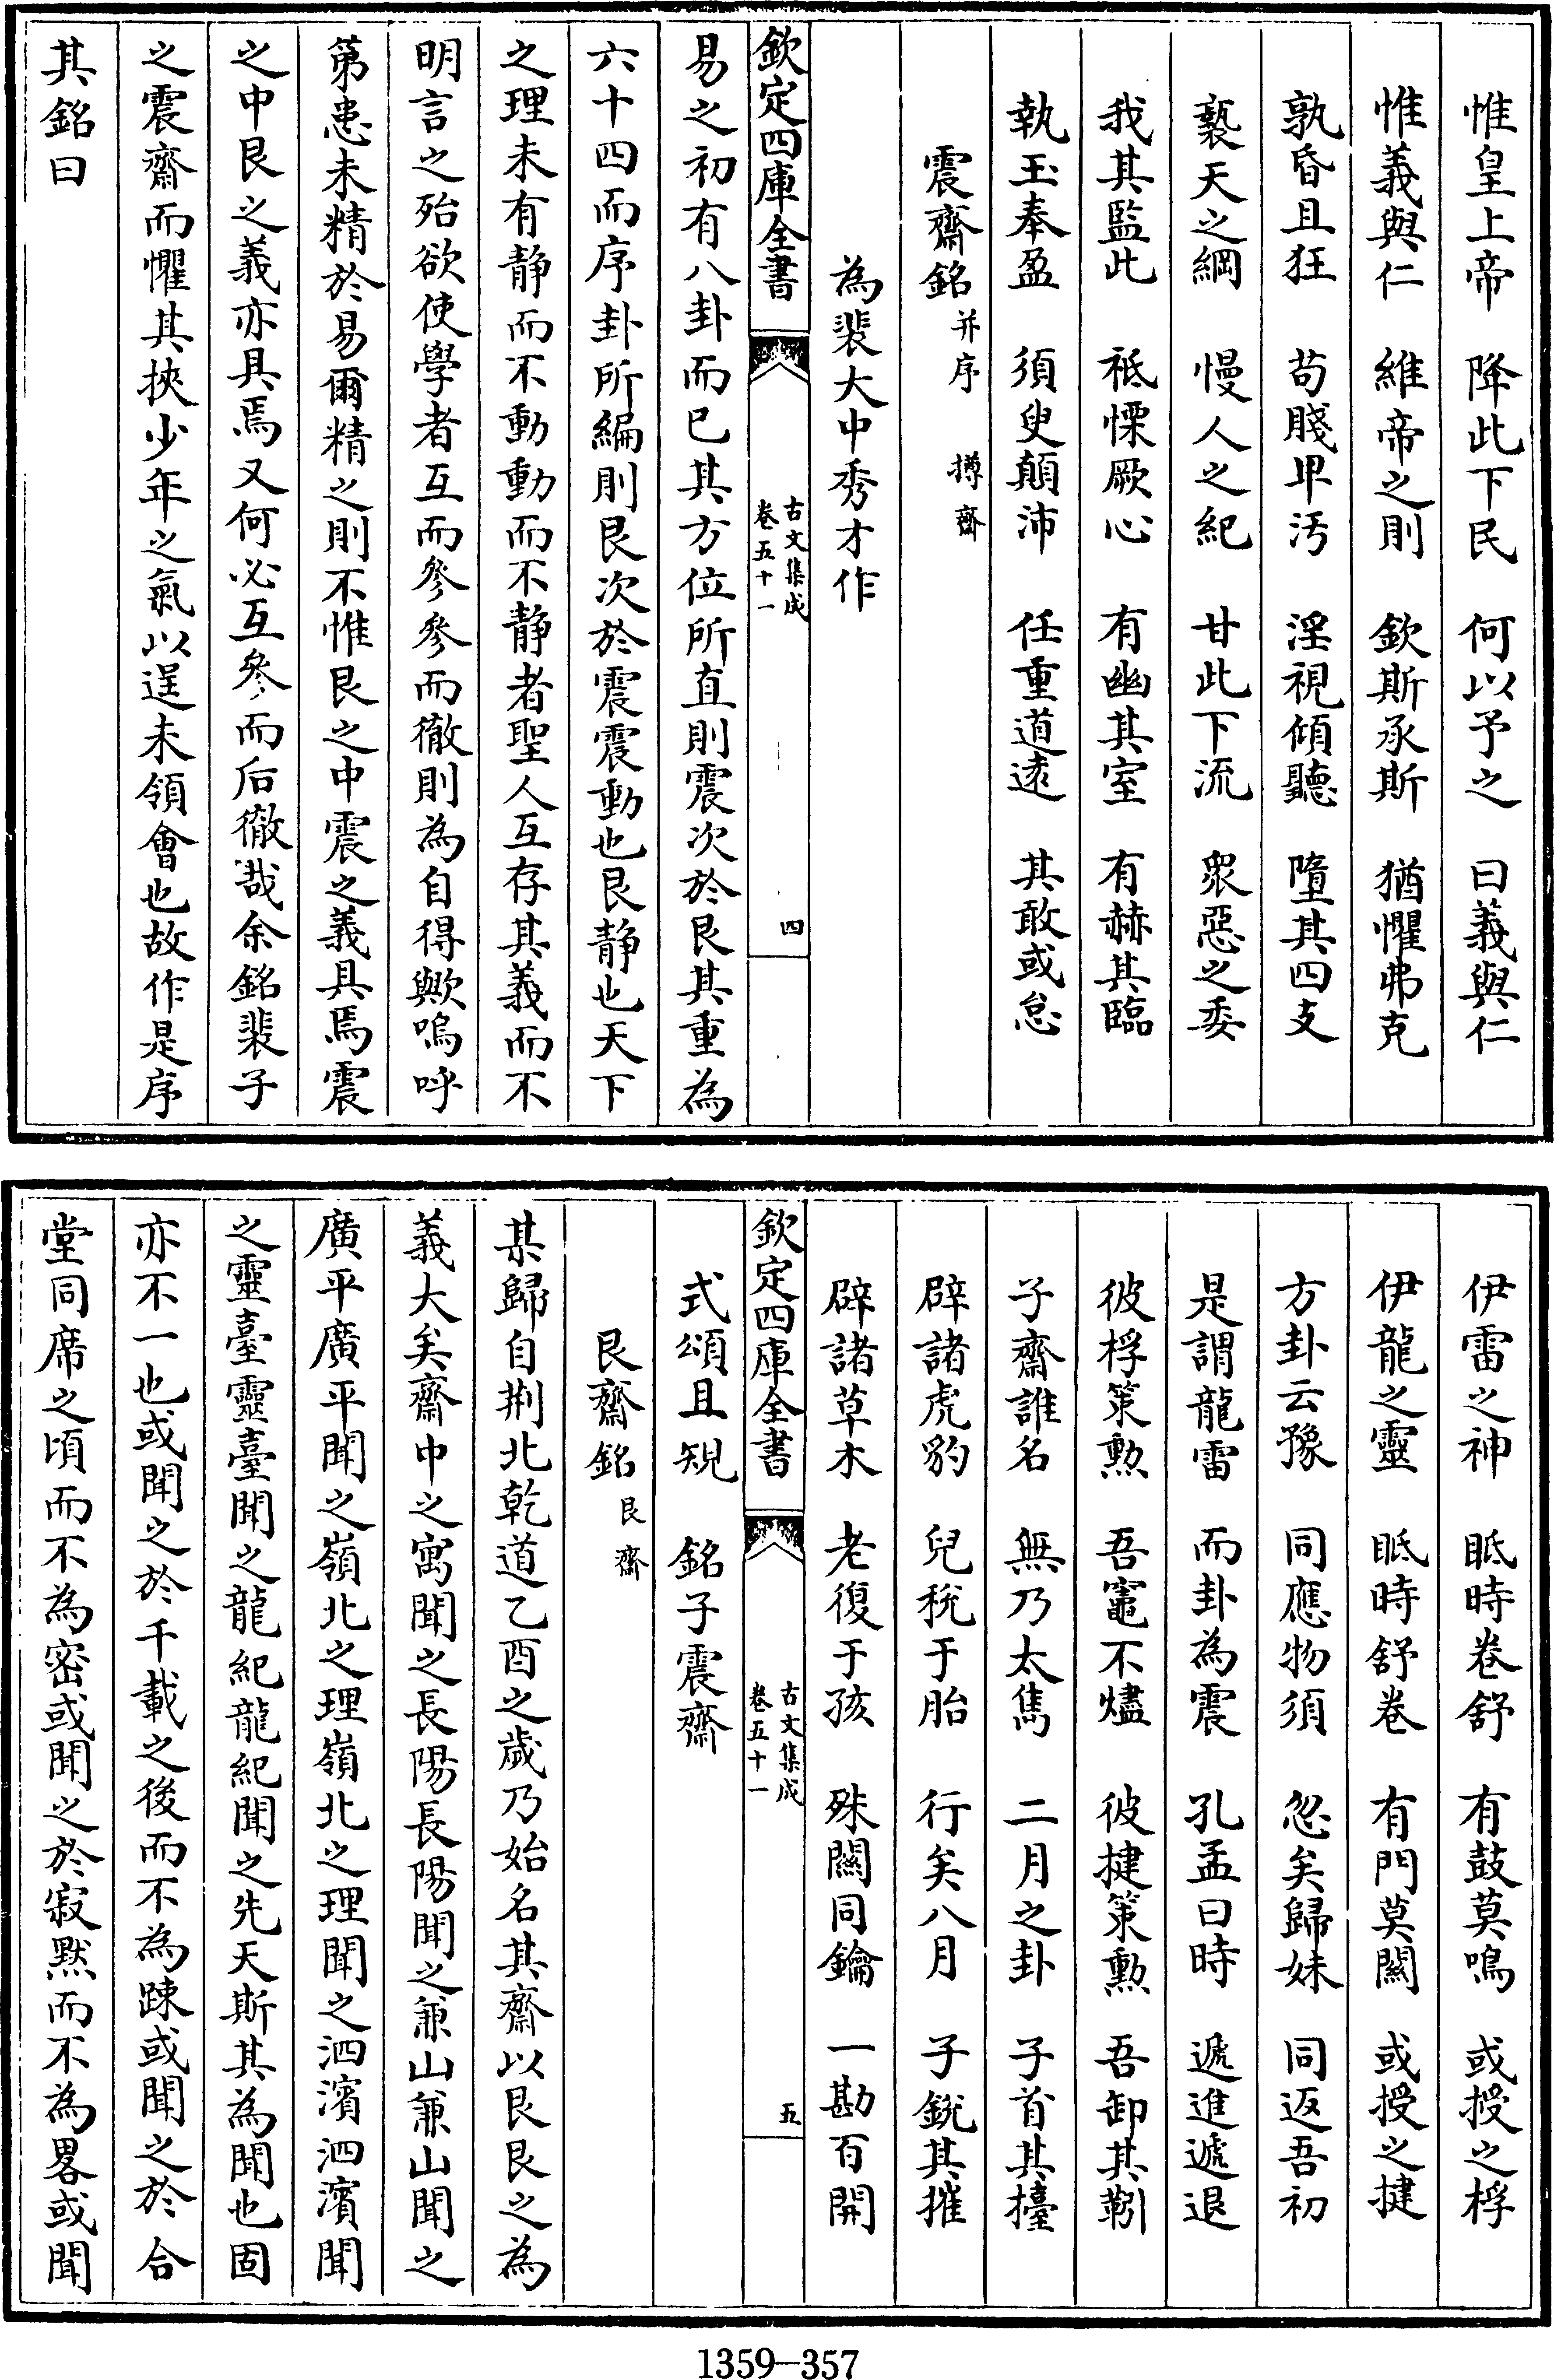 惟皇上帝　降此下民　何以予之　曰義與仁
惟義與仁　維帝之則　欽斯承斯　猶懼弗克
孰昏且狂　苟賤卑汚　淫視傾聽　墮其四支
褻天之綱　慢人之紀　甘此下流　衆惡之委
我其監此　祗慄厥心　有幽其室　有赫其臨
執玉奉盈　須臾顛沛　任重道逺　其敢或怠
震齋銘并序　樽齋
為裴大中秀才作
欽定四庫全書　古文集成卷五十一　四
易之初有八卦而已其方位所直則震次於艮其重為
六十四而序卦所編則艮次於震震動也艮静也天下
之理未有静而不動動而不静者聖人互存其義而不
明言之殆欲使學者互而參參而徹則為自得歟嗚呼
第患未精於易爾精之則不惟艮之中震之義具焉震
之中艮之義亦具焉又何必互參而后徹哉余銘裴子
之震齋而懼其挾少年之氣以逞未領會也故作是序
其銘曰
伊雷之神　眡時卷舒　有鼓莫鳴　或授之桴
伊龍之靈　眡時舒卷　有門莫闗　或授之揵
方卦云豫　同應物須　忽矣歸妹　同返吾初
是謂龍雷　而卦為震　孔孟曰時　遞進遞退
彼桴策勲　吾鼉不燼　彼揵策勲　吾卸其靷
子齋誰名　無乃太雋　二月之卦　子首其擡
辟諸虎豹　兒稅于胎　行矣八月　子銳其摧
辟諸草木　老復于孩　殊闗同鑰　一勘百開
欽定四庫全書　古文集成卷五十一　五
式頌且規　銘子震齋
艮齋銘　艮齋
某歸自荆北乾道乙酉之歲乃始名其齋以艮艮之為
義大矣齋中之寓聞之長陽長陽聞之兼山兼山聞之
廣平廣平聞之嶺北之理嶺北之理聞之泗濱泗濱聞
之靈臺靈臺聞之龍紀龍紀聞之先天斯其為聞也固
亦不一也或聞之於千載之後而不為踈或聞之於合
堂同席之頃而不為密或聞之於寂黙而不為畧或聞
1359-357